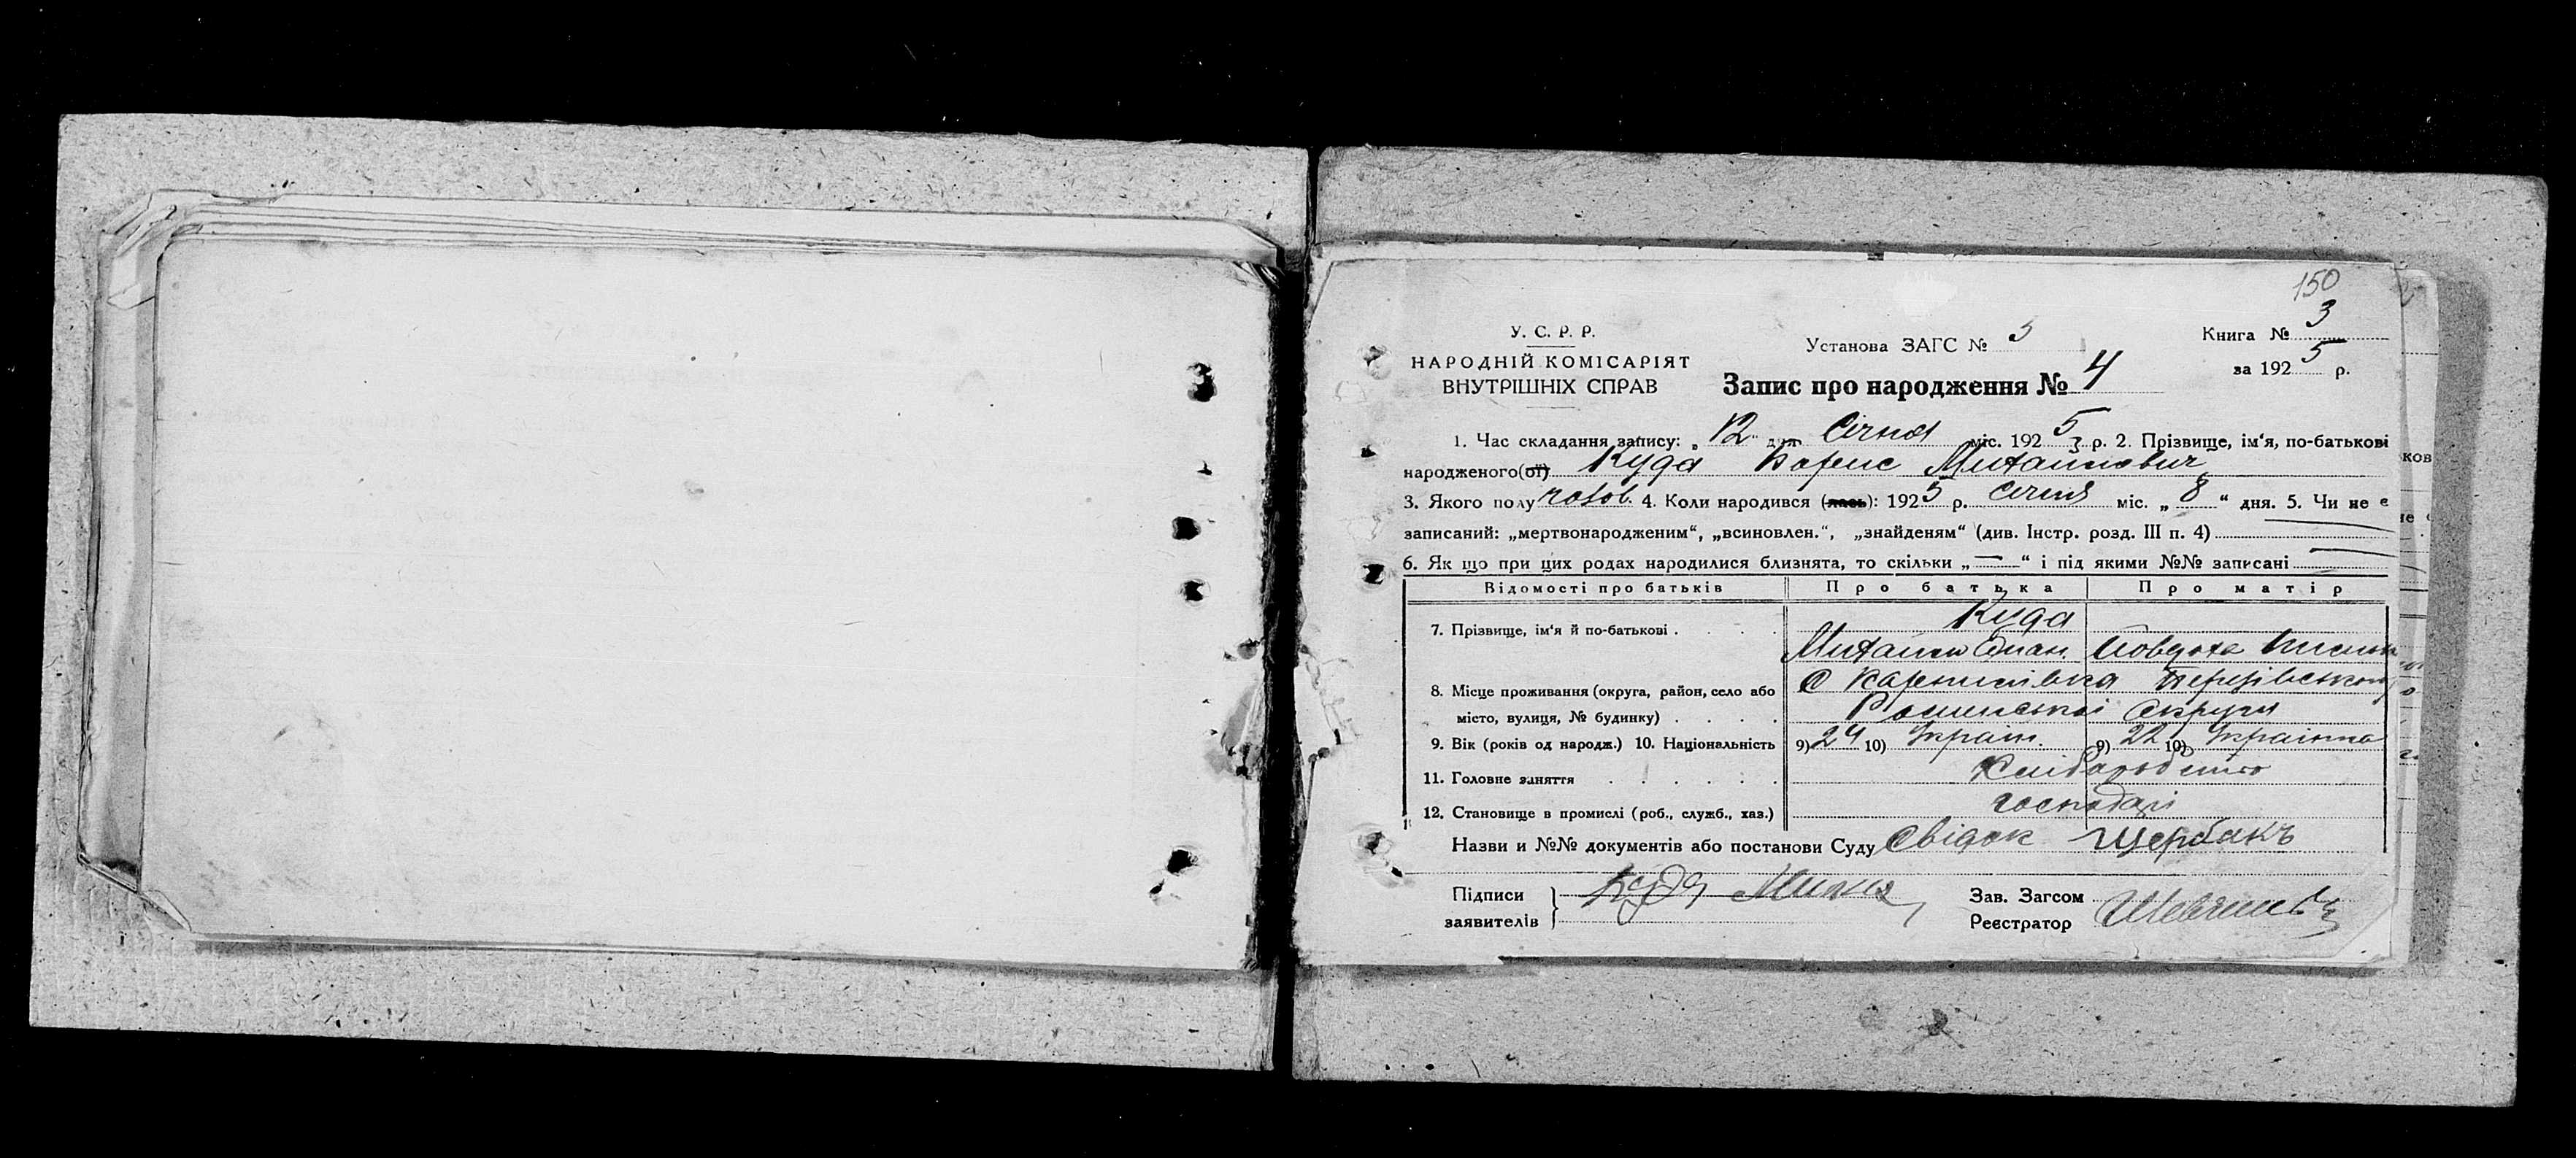 150
У. С. Р. Р.
НАРОДНІЙ КОМІСАРІЯТ
ВНУТРІШНІХ СПРАВ
Установа ЗАГС № 3
Книга № 3
за 1925 р.
Запис про народження № 4
1. Час складання запису: „12" дня Січня міс. 1925 р. 2. Прізвище, ім'я, по-батькові
народженого(ої) Куда Борис Михайлович
3. Якого полу чолов. 4. Коли народився (лась): 1925 р. Січня міс. „8" дня. 5. Чи не є
записаний: „мертвонародженим", „всиновлен.", „знайденям" (див. Інстр. розд. III п. 4)
6. Як що при цих родах народилися близнята, то скільки „—" і під якими №№ записані
Відомості про батьків Про батька Про матір
7. Прізвище, ім'я й по-батькові . . . . Куда
Михайло Явдоха
8. Місце проживання (округа, район, село або С
місто, вулиця, № будинку) . . . . Роменської Округи
9. Вік (років од народж.) 10. Національність 9) 24 10) Україн. 9) 22 10) Українка
11. Головне заняття . . . . . . Хліборобство
12. Становище в промислі (роб., служб., хаз.) господарі
Назви и №№ документів або постанови Суду Свідок Щербакъ
Підписи
заявителів
Куда
Зав. Загсом
Реєстратор